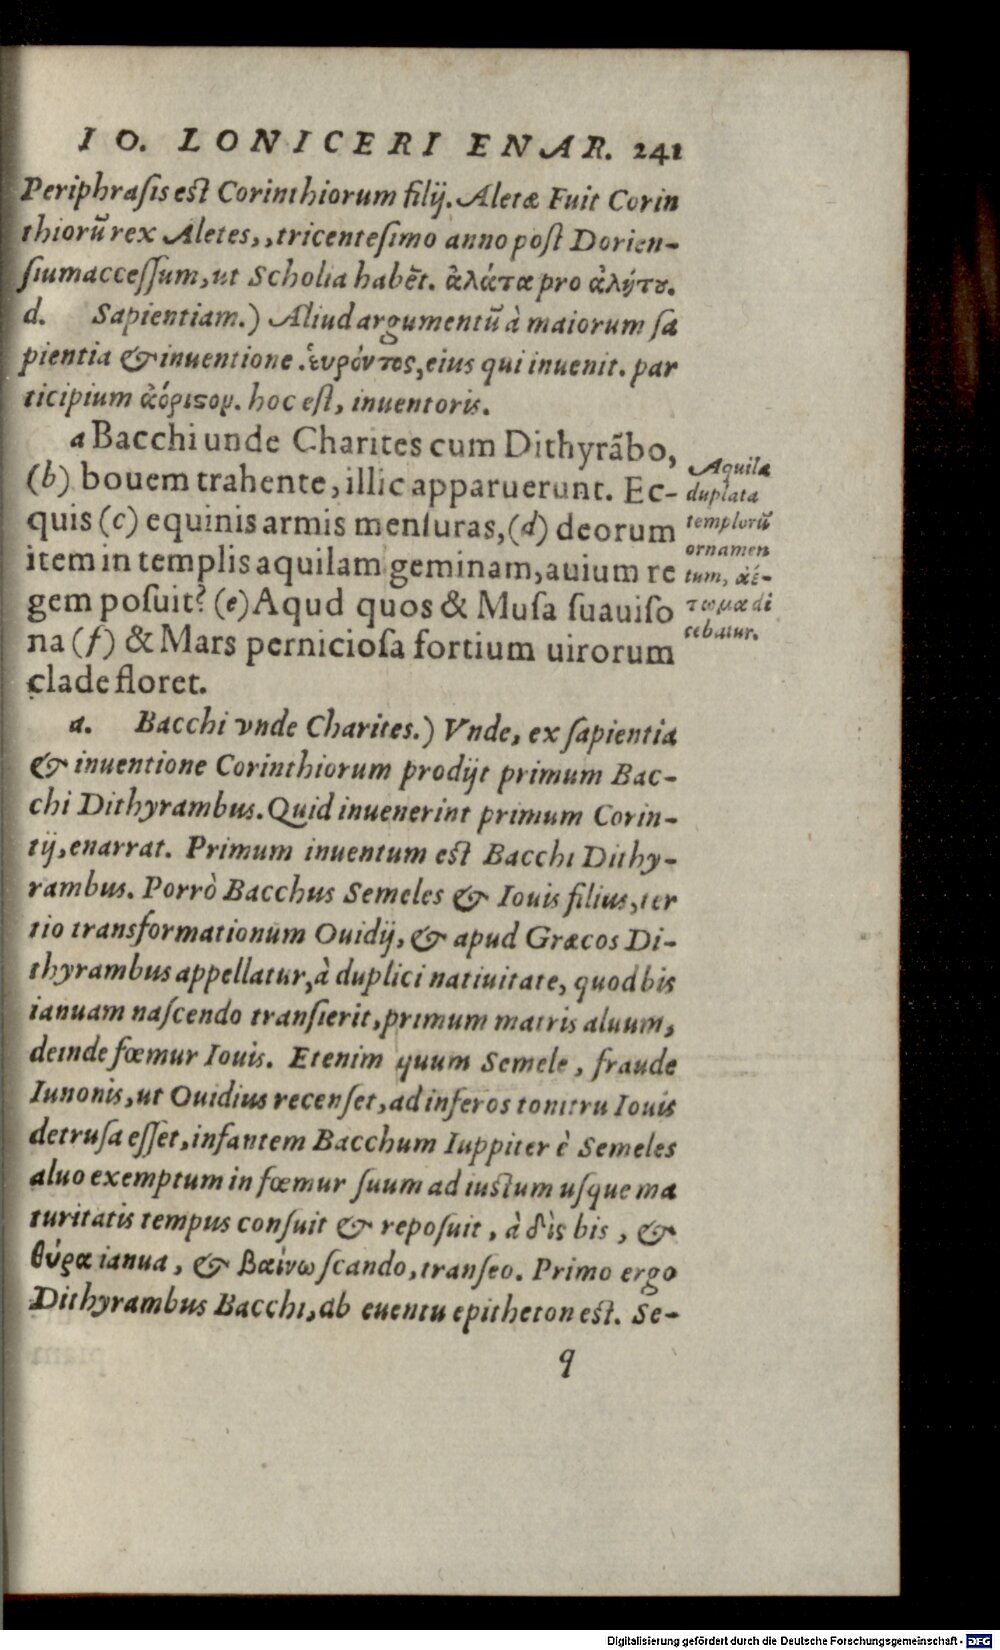 IO. LONICERI ENAR. 241
Periphrasis est Corinthiorum filij. Aletæ Fuit Corin
thiorũ rex Aletes,, tricentesimo anno post Dorien-
sium accessum, ut Scholia habẽt. ἀλάτα pro ἀλήτȣ.
d. Sapientiam.) Aliud argumentũ à maiorum sa
pientia & inuentione .ἑυρόντος, eius qui inuenit. par
ticipium ἀόριϛον. hoc est, inuentoris.
a Bacchi unde Charites cum Dithyrãbo,
(b) bouem trahente, illic apparuerunt. Ec-
quis (c) equinis armis mensuras, (d) deorum
item in templis aquilam geminam, auium re
gem posuit? (e) Aqud quos & Musa suauiso
na (f) & Mars perniciosa fortium uirorum
clade floret.
Aquila
duplata
templorũ
ornamen
tum, ἀέ-
τωμα di
cebatur.
a. Bacchi vnde Charites.) Vnde, ex sapientia
& inuentione Corinthiorum prodijt primum Bac-
chi Dithyrambus. Quid inuenerint primum Corin-
tij, enarrat. Primum inuentum est Bacchi Dithy-
rambus. Porrò Bacchus Semeles & Iouis filius, ter
tio transformationum Ouidij, & apud Græcos Di-
thyrambus appellatur, à duplici natiuitate, quod bis
ianuam nascendo transierit, primum matris aluum,
deinde fœmur Iouis. Etenim quum Semele, fraude
Iunonis, ut Ouidius recenset, ad inferos tonitru Iouis
detrusa esset, infantem Bacchum Iuppiter è Semeles
aluo exemptum in fœmur suum ad iustum usque ma
turitatis tempus consuit & reposuit, à δὶς bis, &
θύρα ianua, & βαίνω scando, transeo. Primo ergo
Dithyrambus Bacchi, ab euentu epitheton est. Se-
q
Digitalisierung gefördert durch die Deutsche Forschungsgemeinschaft - DFG